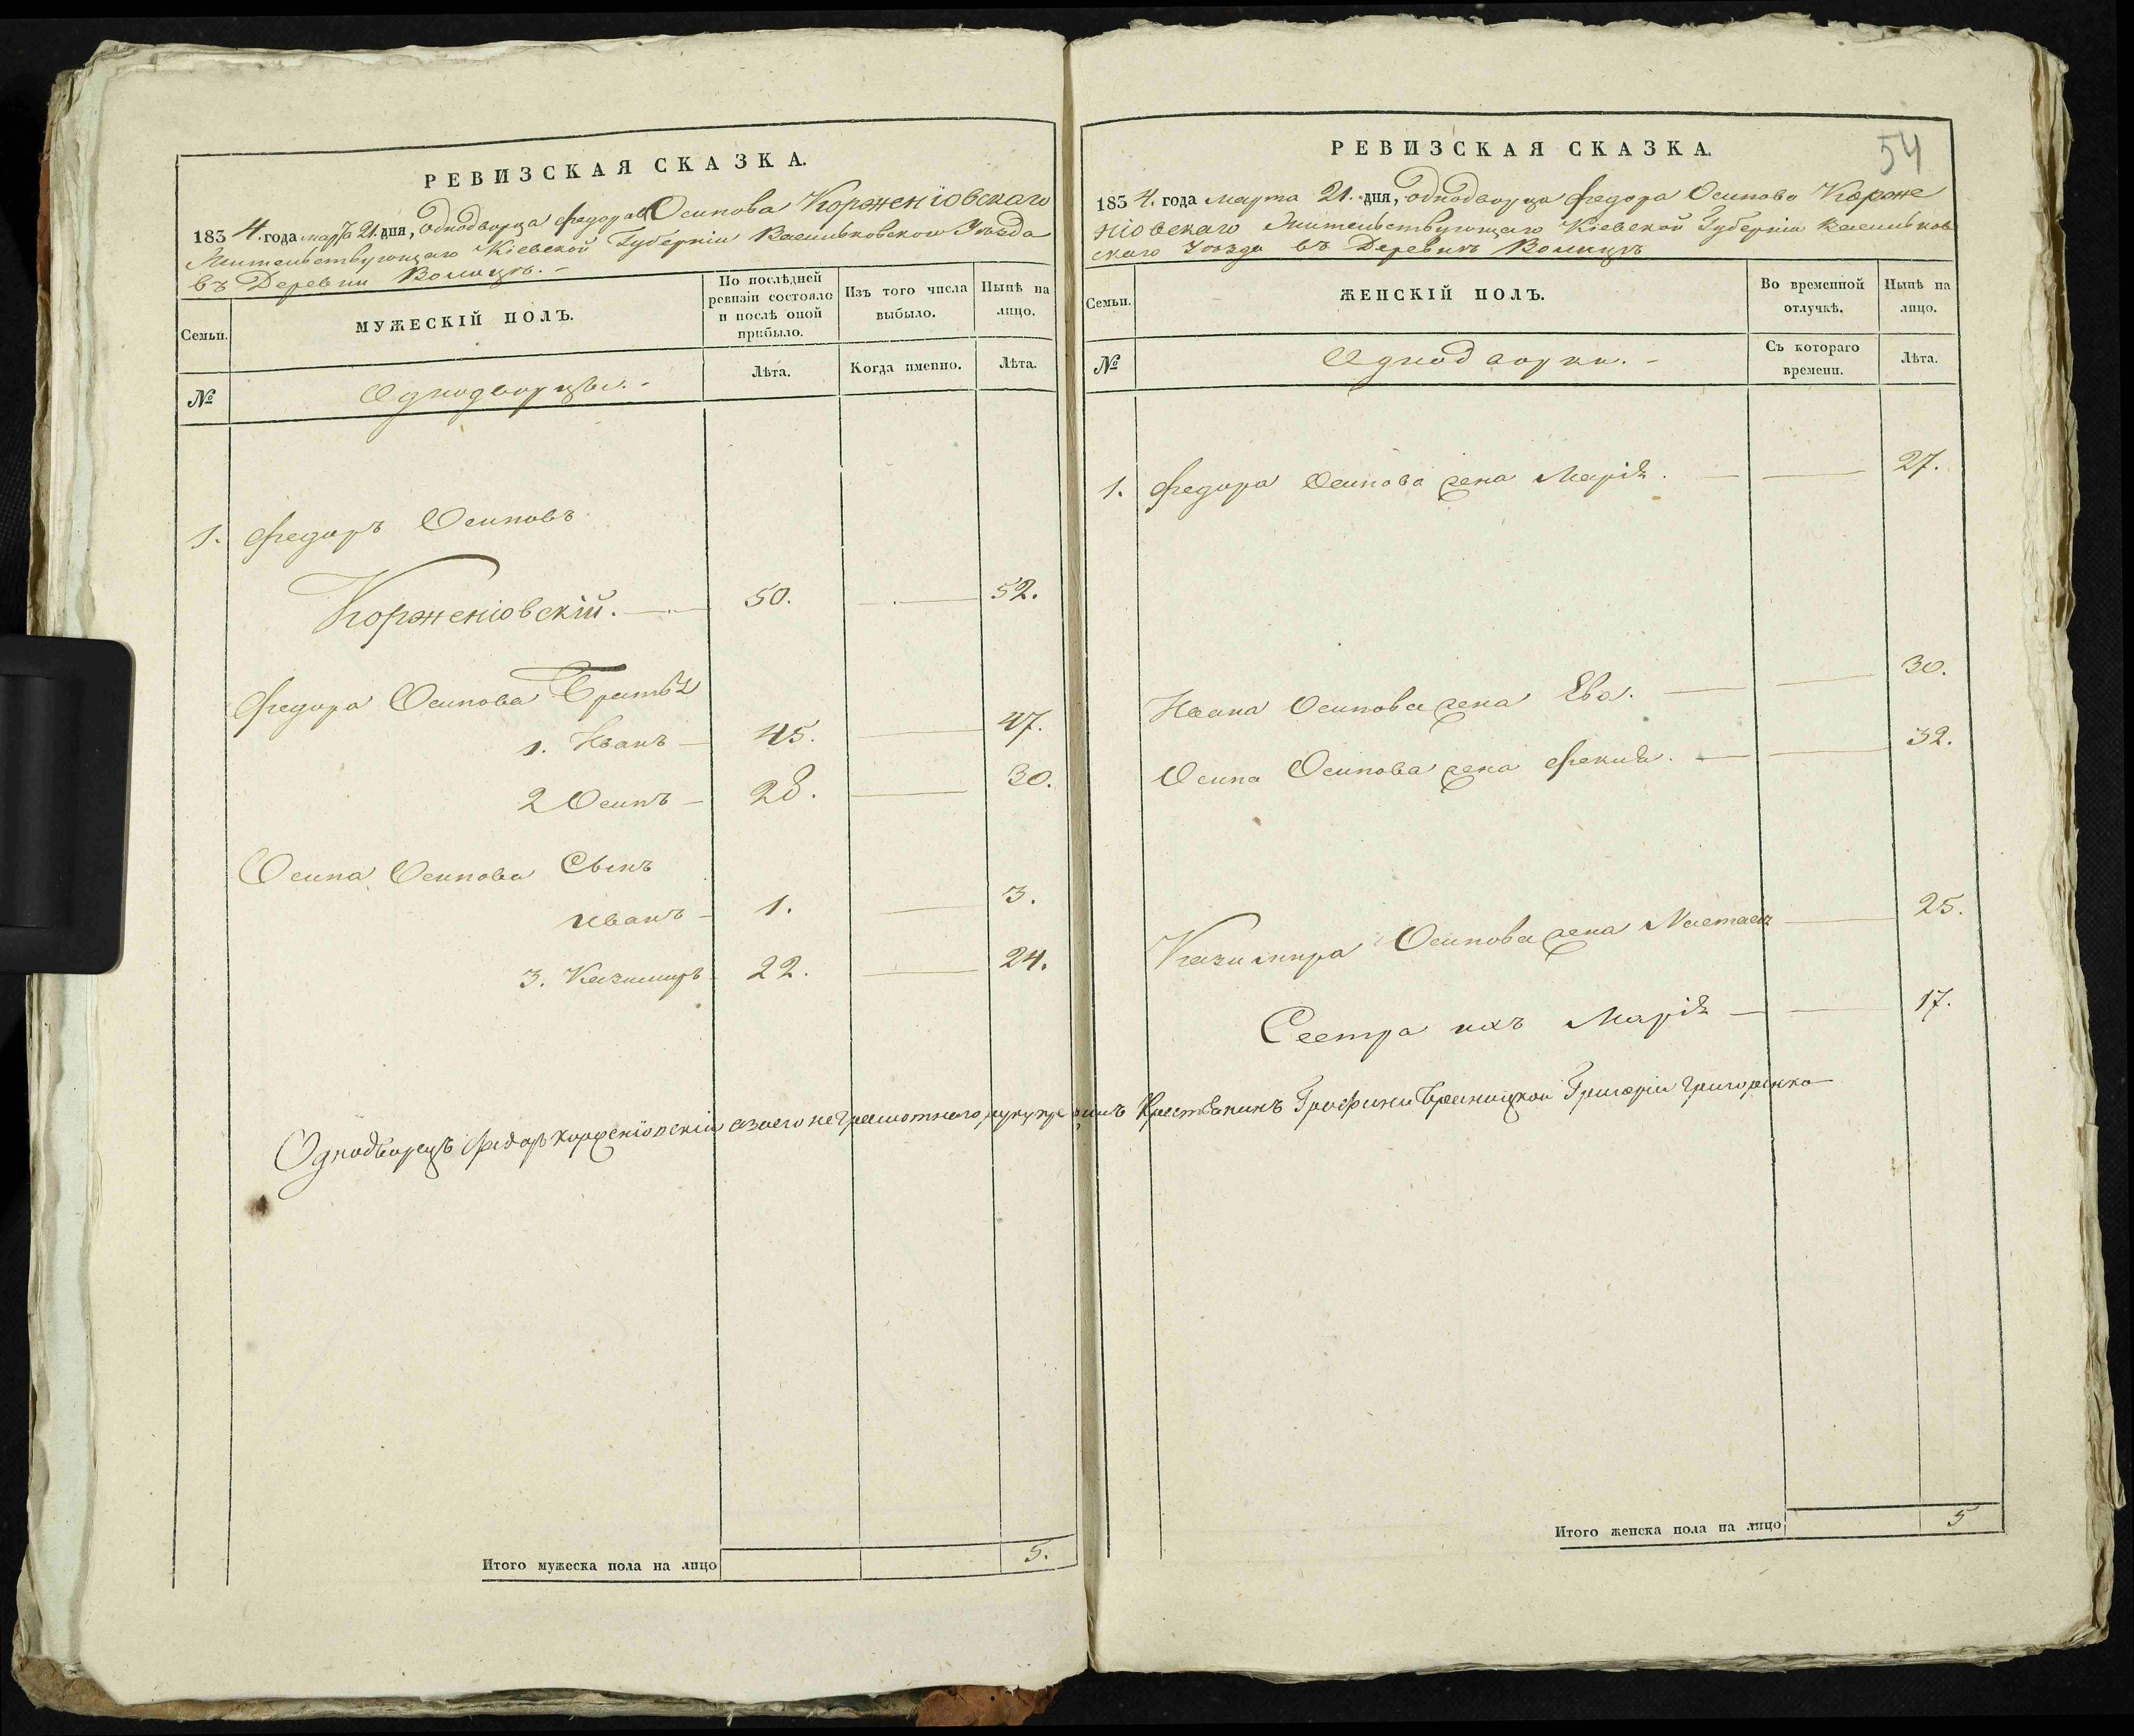 РЕВИЗСКАЯ СКАЗКА.
1834. года марта 21. дня, Однодворца Федора Осипова Корженіовскаго
Жительствующаго Кіевской Губерніи Васильковского Уѣзда
въ Деревни Волицѣ.
Семьи.
МУЖЕСКІЙ ПОЛЪ.
По послѣдней ревизіи состояло и послѣ оной прибыло.
Изъ того числа выбыло.
Нынѣ на лицо.
№
Однодворцы.
Лѣта.
Когда именно.
Лѣта.
1. Федоръ Осиповъ
Корженіовскій. 50. 52.
Федора Осипова Братья
1. Иванъ 45. 47.
2 Осипъ 28. 30.
Осипа Осипова Сынъ
Иванъ 1. 3.
3. Казимиръ 22. 24.
Итого мужеска пола на лицо 5.
54
РЕВИЗСКАЯ СКАЗКА.
1834. года марта 21. дня, Однодворца Федора Осипова Корже
ніовскаго Жительствующаго Кіевской Губерніи Васильков
скаго Уѣзда въ Деревнѣ Волицѣ
Семьи.
ЖЕНСКІЙ ПОЛЪ.
Во временной отлучкѣ.
Нынѣ на лицо.
№
Однодворки.
Съ котораго времени.
Лѣта.
1. Федора Осипова жена Марія. 27.
Ивана Осипова жена Ева. 30.
Осипа Осипова жена 32.
Казимира Осипова жена 25.
Сестра ихъ Марія 17.
Однодворецъ Федоръ Корженіовскій а за его неграмотного руку приложилъ Крестьянинъ Графини Браницкой Григорій Григоренко
Итого женска пола на лицо 5